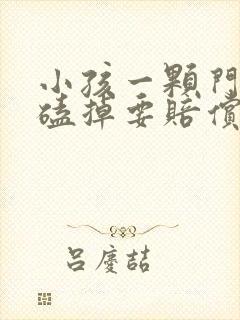 小孩一顆門
磕掉要賠償
呂慶喆